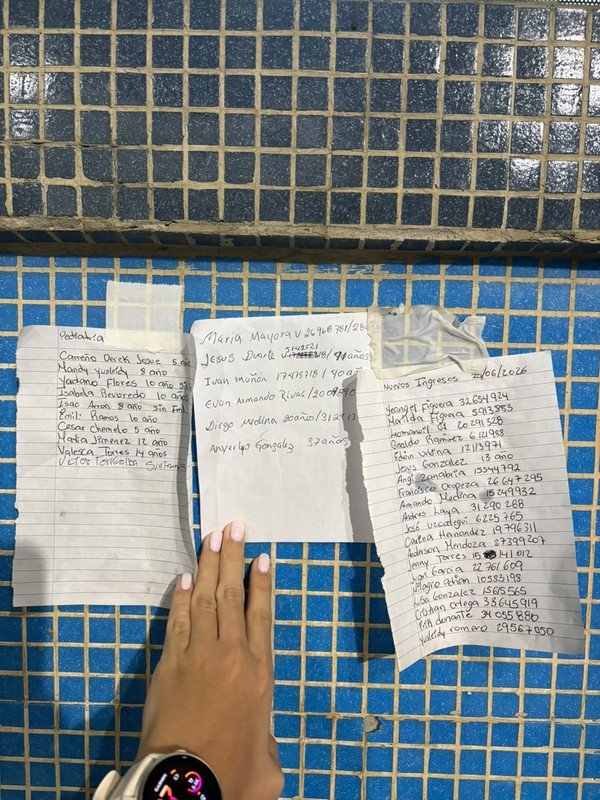 Pediatria
Carreño Derek Josue 5 año
Mandy Yusleidy 8 año
Yadano Flores 10 año Sin
Isabela Reveredo 10 años
Isac Arron 8 año Sin Fml
Emili Ramos 10 año
Cesar Chemelo 5 año
Matia Jimenez 12 año
Valesca Torres 14 años
Victor Torrealba Sin Fama
Maria Mayora V 26968781/28
3141521
Jesus Duarte V /41 años
Ivan Muñon 17475718/40 años
Evan Armando Rivas/
Diego Medina 20 años/
Anyerlys Gonzalez 37 años
Nuevos Ingresos /06/2026
Yeangel Figuera 32654924
Marilda Figuera 5913853
20291328
Ramirez 6121988
12113971
Jesus Gonzalez 13 año
Angi Zanabria 13544792
Francisco Oropeza 26647295
Armando Medina 15249932
Andres Laya 31290288
José Uzcategui 6225765
Carina Hernandez 19796311
Anderson Mendoza 27399207
Jenny Torres 15 41012
Juan Garcia 22761609
Milagro 10583198
Luisa Gonzalez 15615565
Cristian Ortega 33645919
donante 34055880
Yusleidy romero 29567050